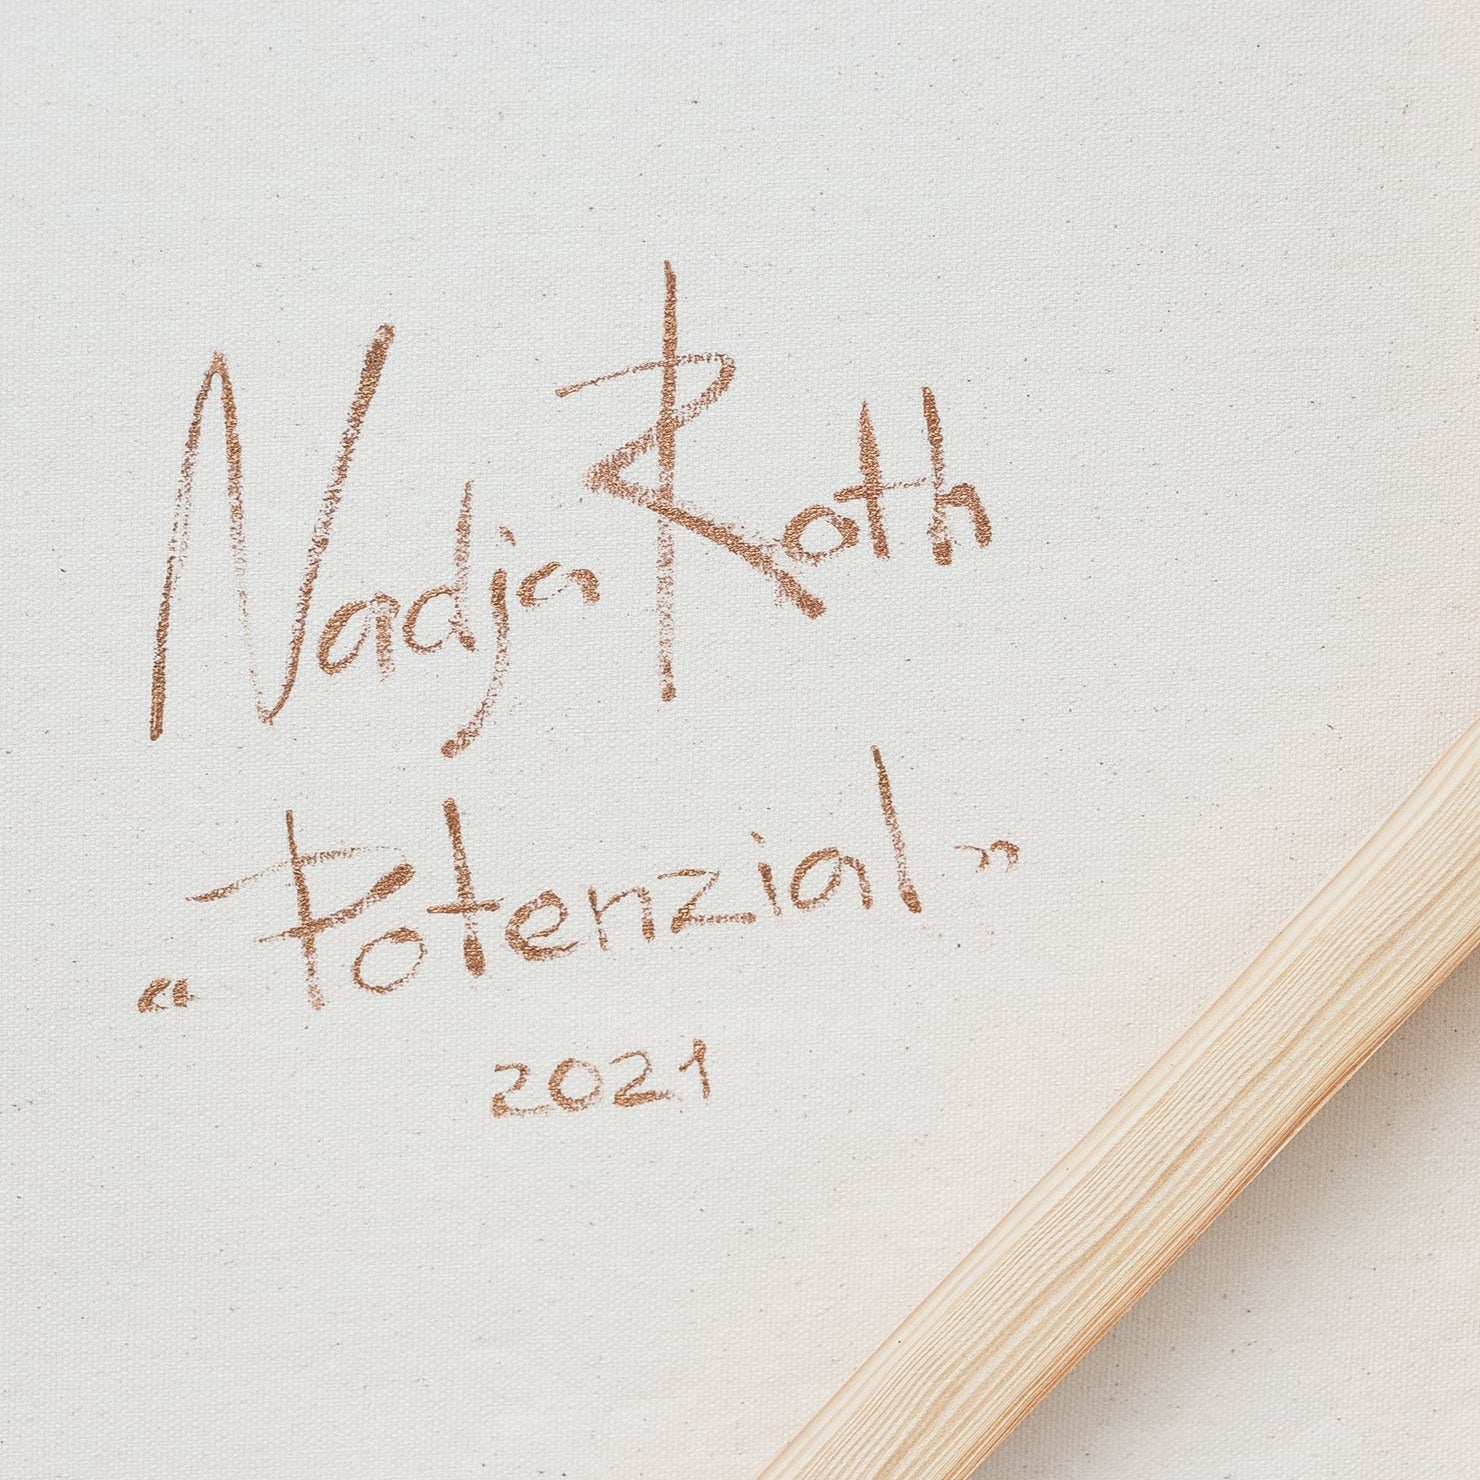 Nadja Roth
“Potenzial”
2021